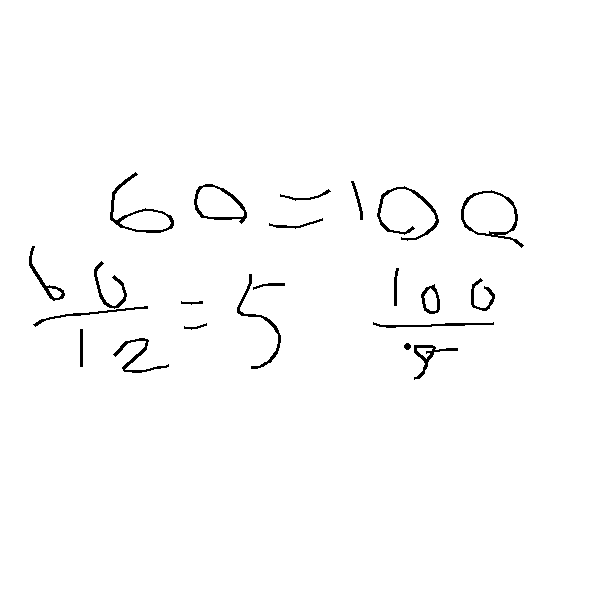 60=100
60/12=5 100/5